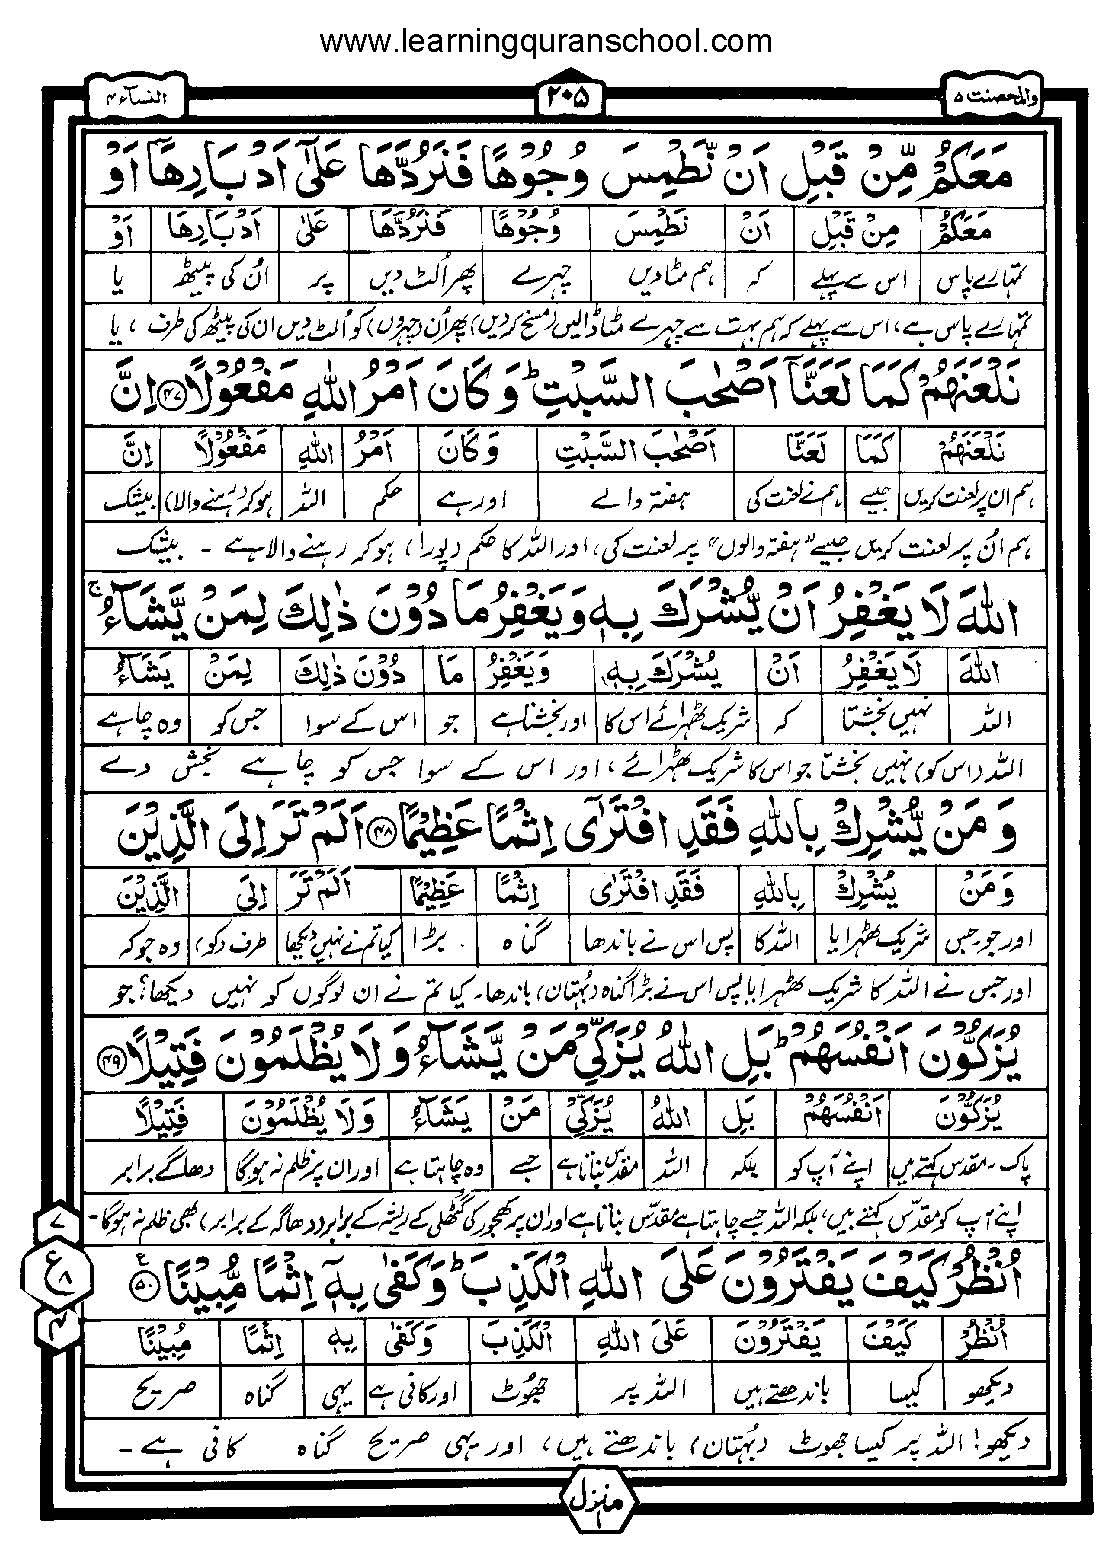 www.learningquranschool.com
والمحصنت ۵
۲۰۵
النساء ۴
مَعَكُمْ مِّنْ قَبْلِ اَنْ نَّطْمِسَ وُجُوْهًا فَنَرُدَّهَا عَلٰۤى اَدْبَارِهَاۤ اَوْ
مَعَكُمْ مِنْ قَبْلِ اَنْ نَطْمِسَ وُجُوْهًا فَنَرُدَّهَا عَلٰى اَدْبَارِهَا اَوْ
تمہارے پاس اس سے پہلے کہ ہم مٹا دیں چہرے پھر اُلٹ دیں پر اُن کی پیٹھ یا
تمہارے پاس ہے، اس سے پہلے کہ ہم بہت سے چہرے مٹا ڈالیں (مسخ کر دیں) پھر اُن (چہروں) کو اُلٹ دیں ان کی پیٹھ کی طرف ، یا
نَلْعَنَهُمْ كَمَا لَعَنَّاۤ اَصْحٰبَ السَّبْتِ ؕ وَكَانَ اَمْرُ اللّٰهِ مَفْعُوْلًا ۴۷ اِنَّ
نَلْعَنَهُمْ كَمَا لَعَنَّا اَصْحٰبَ السَّبْتِ وَكَانَ اَمْرُ اللّٰهِ مَفْعُوْلًا اِنَّ
ہم ان پر لعنت کریں جیسے ہم نے لعنت کی ہفتہ والے اور ہے حکم اللہ ہو کر (رہنے والا) بیشک
ہم اُن پر لعنت کریں جیسے "ہفتہ والوں" پر لعنت کی، اور اللہ کا حکم (پورا) ہو کر رہنے والا ہے - بیشک
اللّٰهَ لَا يَغْفِرُ اَنْ يُّشْرَكَ بِهٖ وَيَغْفِرُ مَا دُوْنَ ذٰلِكَ لِمَنْ يَّشَآءُ ۚ
اللّٰهَ لَا يَغْفِرُ اَنْ يُشْرَكَ بِهٖ وَيَغْفِرُ مَا دُوْنَ ذٰلِكَ لِمَنْ يَشَآءُ
اللہ نہیں بخشتا کہ شریک ٹھہرائے اس کا اور بخشتا ہے جو اس کے سوا جس کو وہ چاہے
اللہ (اس کو) نہیں بخشتا جو اس کا شریک ٹھہرائے ، اور اس کے سوا جس کو چاہے بخش دے
وَمَنْ يُّشْرِكْ بِاللّٰهِ فَقَدِ افْتَرٰۤى اِثْمًا عَظِيْمًا ۴۸ اَلَمْ تَرَ اِلَى الَّذِيْنَ
وَمَنْ يُشْرِكْ بِاللّٰهِ فَقَدِ افْتَرٰى اِثْمًا عَظِيْمًا اَلَمْ تَرَ اِلَى الَّذِيْنَ
اور جو جس شریک ٹھہرایا اللہ کا پس اس نے باندھا گناہ بڑا کیا تم نے نہیں دیکھا طرف (کو) وہ جو کہ
اور جس نے اللہ کا شریک ٹھہرایا پس اس نے بڑا گناہ (بُہتان) باندھا - کیا تم نے ان لوگوں کو نہیں دیکھا؟ جو
يُزَكُّوْنَ اَنْفُسَهُمْ ؕ بَلِ اللّٰهُ يُزَكِّيْ مَنْ يَّشَآءُ وَلَا يُظْلَمُوْنَ فَتِيْلًا ۴۹
يُزَكُّوْنَ اَنْفُسَهُمْ بَلِ اللّٰهُ يُزَكِّيْ مَنْ يَشَآءُ وَلَا يُظْلَمُوْنَ فَتِيْلًا
پاک - مقدس کہتے ہیں اپنے آپ کو بلکہ اللہ مقدس بناتا ہے جسے وہ چاہتا ہے اور ان پر ظلم نہ ہوگا دھاگے برابر
اپنے آپ کو مقدّس کہتے ہیں، بلکہ اللہ جسے چاہتا ہے مقدّس بناتا ہے اور ان پر کھجور کی گٹھلی کے ریشہ کے برابر (دھاگہ کے برابر) بھی ظلم نہ ہوگا -
اُنْظُرْ كَيْفَ يَفْتَرُوْنَ عَلَى اللّٰهِ الْكَذِبَ ؕ وَكَفٰى بِهٖۤ اِثْمًا مُّبِيْنًا ۵۰ ع
اُنْظُرْ كَيْفَ يَفْتَرُوْنَ عَلَى اللّٰهِ الْكَذِبَ وَكَفٰى بِهٖ اِثْمًا مُبِيْنًا
دیکھو کیسا باندھتے ہیں اللہ پر جھوٹ اور کافی ہے یہی گناہ صریح
دیکھو! اللہ پر کیسا جھوٹ (بُہتان) باندھتے ہیں، اور یہی صریح گناہ کافی ہے -
۷
ع ۸
۴
منزل ۱